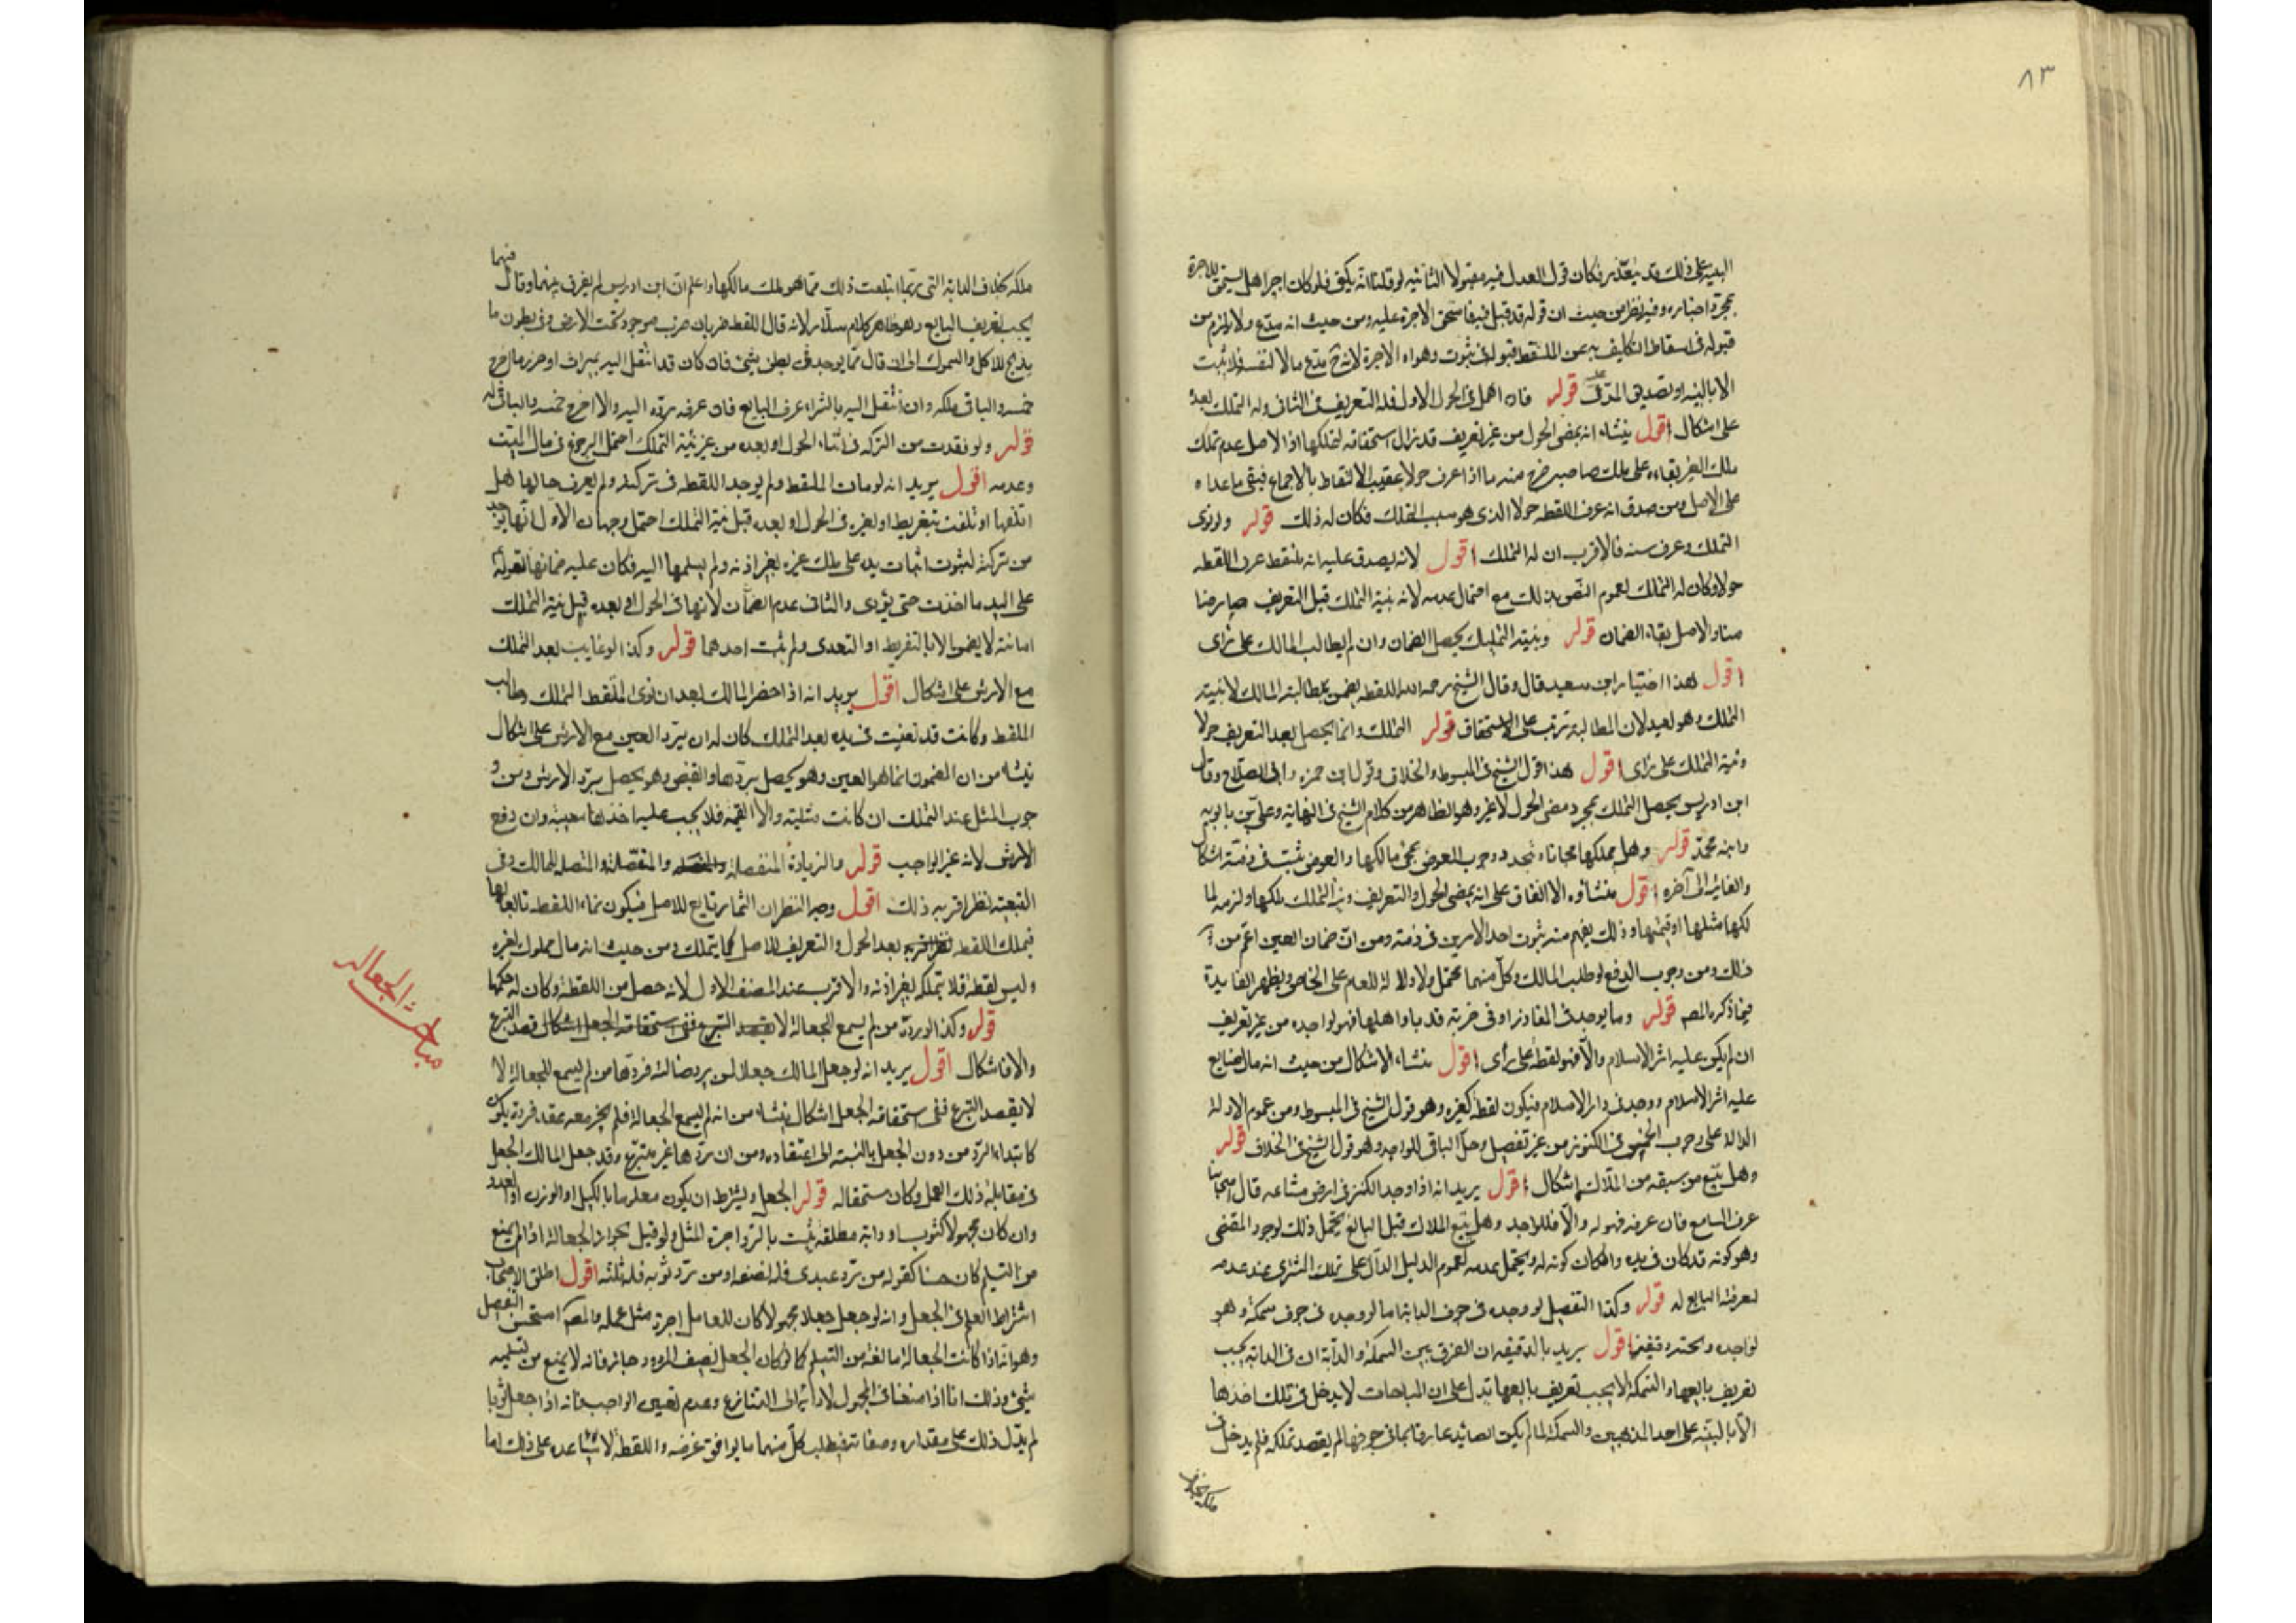 ٨٣
البينة على ذلك قد يتعذر فكان قول العدل فيه مقبولا الثانية لو قلنا انه يكفي فلو كان اجيرا هل يستحق الاجرة
بمجرد اخباره وفيه نظر من حيث ان قوله قد قبل فيها فاستحق الاجرة عليه ومن حيث انه مدع ولا يلزم من
قبوله في اسقاط التكليف به عن الملتقط قبوله في ثبوت دعواه الاجرة لانه ح مدع مالا لنفسه فلا يثبت
الا بالبينه او تصديق المدعى عليه قوله فان اهمل في الحول الاول فله التعريف في الثاني وله التملك بعده
على اشكال اقول ينشاء انه بمضي الحول من غير تعريف قد زال استحقاقه لتملكها اذ الاصل عدم تملك
ملك الغير بقاءه على ملك صاحبه خرج منه ما اذا عرف حولا عقيب الالتقاط بالاجماع فبقي ما عداه
على الاصل ومن صدق انه عرف اللقطه حولا الذي هو سبب التملك فكان له ذلك قوله ولو نوى
التملك وعرف سنه فالاقرب ان له التملك اقول لانه يصدق عليه انه ملتقط عرف اللقطه
حولا وكان له التملك لعموم النصوص بذلك مع احتمال عدمه لانه بنية التملك قبل التعريف صار ضا
منا والاصل بقاء الضمان قوله وبنيته التمليك يحصل الضمان وان لم يطالب المالك على رأى
اقول هذا اختيار ابن سعيد قال وقال الشيخ رحمه الله اللقطه يضمن بمطالبة المالك لا بنيته
التملك وهو بعيد لان المطالبة ترتب على الاستحقاق قوله التملك وانما يحصل بعد التعريف حولا
ونية التملك على رأى اقول هذا قول الشيخ في المبسوط والخلاف وقول ابن حمزه وابي الصلاح وقال
ابن ادريس يحصل التملك بمجرد مضى الحول لا غير وهو الظاهر من كلام الشيخ في النهاية وعلي بن بابويه
وابنه محمد قوله وهل يملكها مجانا ويتجدد وجوب العوض بمجئ مالكها والعوض يثبت في ذمته اشكال
والفائدة الى آخره اقول منشأوه الاتفاق على انه بمضي الحول والتعريف ونية التملك يملكها ولزمه لما
لكها مثلها او قيمتها وذلك يفهم منه ثبوت احد الامرين في ذمته ومن ان ضمان العين اعم من
ذلك ومن وجوب الدفع لو طلب المالك وكل منهما محتمل ولا دلالة للعام على الخاص ويظهر الفايدة
فيما ذكره المصه قوله وما يوجد في المفاوز او في خربة قد باد اهلها فهو لواجده من غير تعريف
ان لم يكن عليه اثر الاسلام والا فهو لقطة على رأى اقول منشاء الاشكال من حيث انه مال ضايع
عليه اثر الاسلام ووجد في دار الاسلام فيكون لقطة كغيره وهو قول الشيخ في المبسوط ومن عموم الادلة
الدالة على وجوب الخمس في الكنوز من غير تفصيل وحل الباقي للواجد وهو قول الشيخ في الخلاف قوله
وهل يتبع من سبقه من الملاك اشكال اقول يريد انه اذا وجد الكنز في ارض مشاعه قال اصحابنا
عرف البايع فان عرفه فهو له والا فللواجد وهل يتبع الملاك قبل البايع يحتمل ذلك لوجود المقتضى
وهو كونه قد كان في يده وامكان كونه له ويحتمل عدمه لعموم الدليل الدال على تملك المشترى عند عدم
معرفة البايع له قوله وكذا التفصيل لو وجده في جوف الدابة اما لو وجده في جوف سمكة وهو
لواجده وتحته دقيقة اقول يريد بالدقيقه ان الفرق بين السمكة والدابة ان في الدابة يجب
تعريف بايعها والسمكة لا يجب تعريف بايعها تدل على ان المباحات لا يدخل في تلك اخذها
الا بالنية على احد المذهبين والسمكة لما لم يكن الصائد عارفا بما في جوفها لم يقصد تملكه فلم يدخل في
ملكه بخلاف
فيهما
ملكه بخلاف الدابة التي ربما ابتلعت ذلك مما هو ملك مالكها واعلم ان ابن ادريس لم يفرق بينهما وقال
يجب تعريف البايع وهو ظاهر كلام سلار لانه قال اللقط ضربان ضرب موجود تحت الارض وفي بطون ما
يذبح للاكل والسموك الى ان قال مما يوجد في بطن شئ فان كان قد انتقل اليه بميراث او من مال اخرج
خمسه والباقي ملكه وان انتقل اليه بالشراء عرف البايع فان عرفه رده اليه والا اخرج خمسه والباقي له
قوله ولو فقدت من التركه في اثناء الحول او بعده من غير نية التملك احتمل الرجوع في مال الميت
وعدمه اقول يريد انه لو مات الملتقط ولم يوجد اللقطه في تركته ولم يعرف حالها هل
اتلفها او تلفت بتفريط او بغيره في الحول او بعده قبل نية التملك احتمل وجهان الاول انها يوخذ
من تركته لثبوت اثبات يده على ملك غيره بغير اذنه ولم يسلمها اليه فكان عليه ضمانها لقوله
على اليد ما اخذت حتى يؤدى والثاني عدم الضمان لانها في الحول او بعده قبل نية التملك
امانته لا يضمن الا بالتفريط او التعدى ولم يثبت احدهما قوله وكذا لو عابت بعد التملك
مع الارش على اشكال اقول يريد انه اذا حضر المالك بعد ان نوى الملتقط التملك وطالب
الملتقط وكانت قد تعيبت في يده بعد التملك كان له ان يرد العين مع الارش على اشكال
ينشاء من ان المضمون انما هو العين وهو يحصل بردها والنقص وهو يحصل برد الارش ومن و
جوب المثل عند التملك ان كانت مثلية والا القيمة فلا يجب عليه اخذها معيبة وان دفع
الارش لانه غير الواجب قوله والزيادة المنفصلة والمتصلة للمالك وفي
التبعية نظر اقربه ذلك اقول وجه النظر ان النماء تابع للاصل فيكون نماء اللقطه تابعا لها
فيملك اللقطه بعد الحول والتعريف للاصل كما يتملك ومن حيث انه مال مملوك لغيره
وليس لقطة فلا يتملكه بغير اذنه والاقرب عند المصنف الاول لانه حصل من اللقطة وكان له حكمها
قوله وكذا لو رده من لم يسمع الجعالة لا بقصد التبرع ففي استحقاقه الجعل اشكال
والا فاشكال اقول يريد انه لو جعل المالك جعلا لمن يرد ضالته فردها من لم يسمع الجعالة لا
لا بقصد التبرع ففي استحقاقه الجعل اشكال ينشاء من انه لم يسمع الجعالة فلم يجز معه عقد فرده يكون
كابتداء الرد من دون الجعل بالنسبة الى اعتقاده ومن ان ردها غير متبرع وقد جعل المالك الجعل
في مقابلة ذلك العمل وكان مستحقا له قوله الجعل ويشترط ان يكون معلوما بالكيل او الوزن او العدد
وان كان مجهولا كثوب او دابة مطلقة يثبت بالرد اجرة المثل ولو قيل بجواز الجعالة اذا لم يمنع
من التسليم كان حسنا كقوله من رد عبدي فله نصفه او من رد ثوبه فله ثلثه اقول اطلق الاصحاب
اشتراط العلم في الجعل وانه لو جعل جعلا مجهولا كان للعامل اجرة مثل عمله والمصه استحسن التفصيل
وهو انه اذا كانت الجعالة مانعة من التسليم كما لو كان الجعل نصف المردود جاز فانه لا يمنع من تسليمه
شئ وذلك انا اذا منعنا في المجهول لاداته الى التنازع وعدم تعيين الواجب فانه اذا جعل ثوبا
لم يدل ذلك على مقداره وصفاته فيطلب كل منهما ما يوافق غرضه واللقطة لا تساعده على ذلك اما
مباحث الجعاله